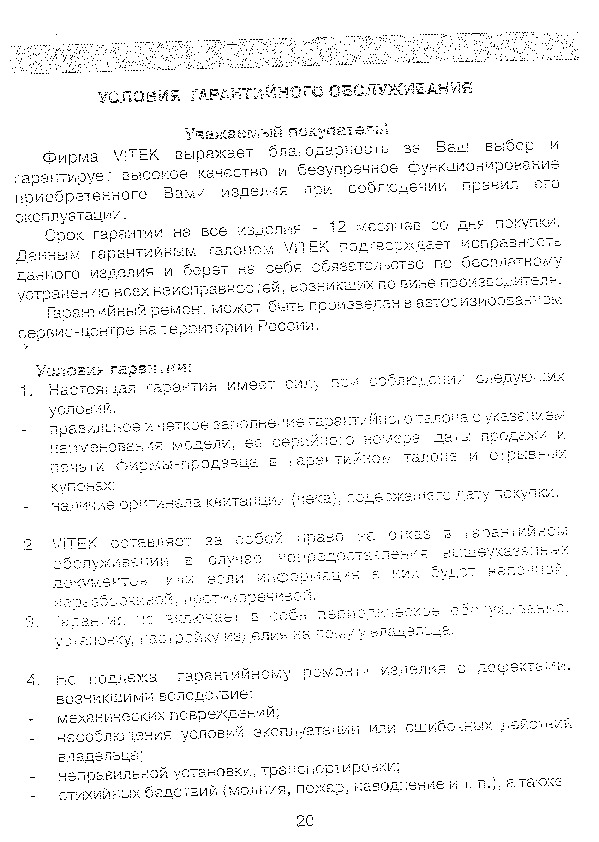 УСЛОВИЯ ГАРАНТИЙНОГО ОБСЛУЖИВАНИЯ
Уважаемый покупатель!
Фирма VITEK выражает благодарность за Ваш выбор и
гарантирует высокое качество и безупречное функционирование
приобретенного Вами изделия при соблюдении правил его
эксплуатации.
Срок гарантии на все изделия - 12 месяцев со дня покупки.
Данным гарантийным талоном VITEK подтверждает исправность
данного изделия и берет на себя обязательство по бесплатному
устранению всех неисправностей, возникших по вине производителя.
Гарантийный ремонт может быть произведен в авторизированном
сервис-центре на территории России.
Условия гарантии:
1. Настоящая гарантия имеет силу при соблюдении следующих
условий:
- правильное и четкое заполнение гарантийного талона с указанием
наименования модели, ее серийного номера, даты продажи и
печати фирмы-продавца в гарантийном талоне и отрывных
купонах;
- наличие оригинала квитанции (чека), содержащего дату покупки.
2. VITEK оставляет за собой право на отказ в гарантийном
обслуживании в случае непредоставления вышеуказанных
документов, или если информация в них будет неполной,
неразборчивой, противоречивой.
3. Гарантия не включает в себя периодическое обслуживание,
установку, настройку изделия на дому у владельца.
4. Не подлежат гарантийному ремонту изделия с дефектами,
возникшими вследствие:
- механических повреждений;
- несоблюдения условий эксплуатации или ошибочных действий
владельца;
- неправильной установки, транспортировки;
- стихийных бедствий (молния, пожар, наводнение и т. п.), а также
20